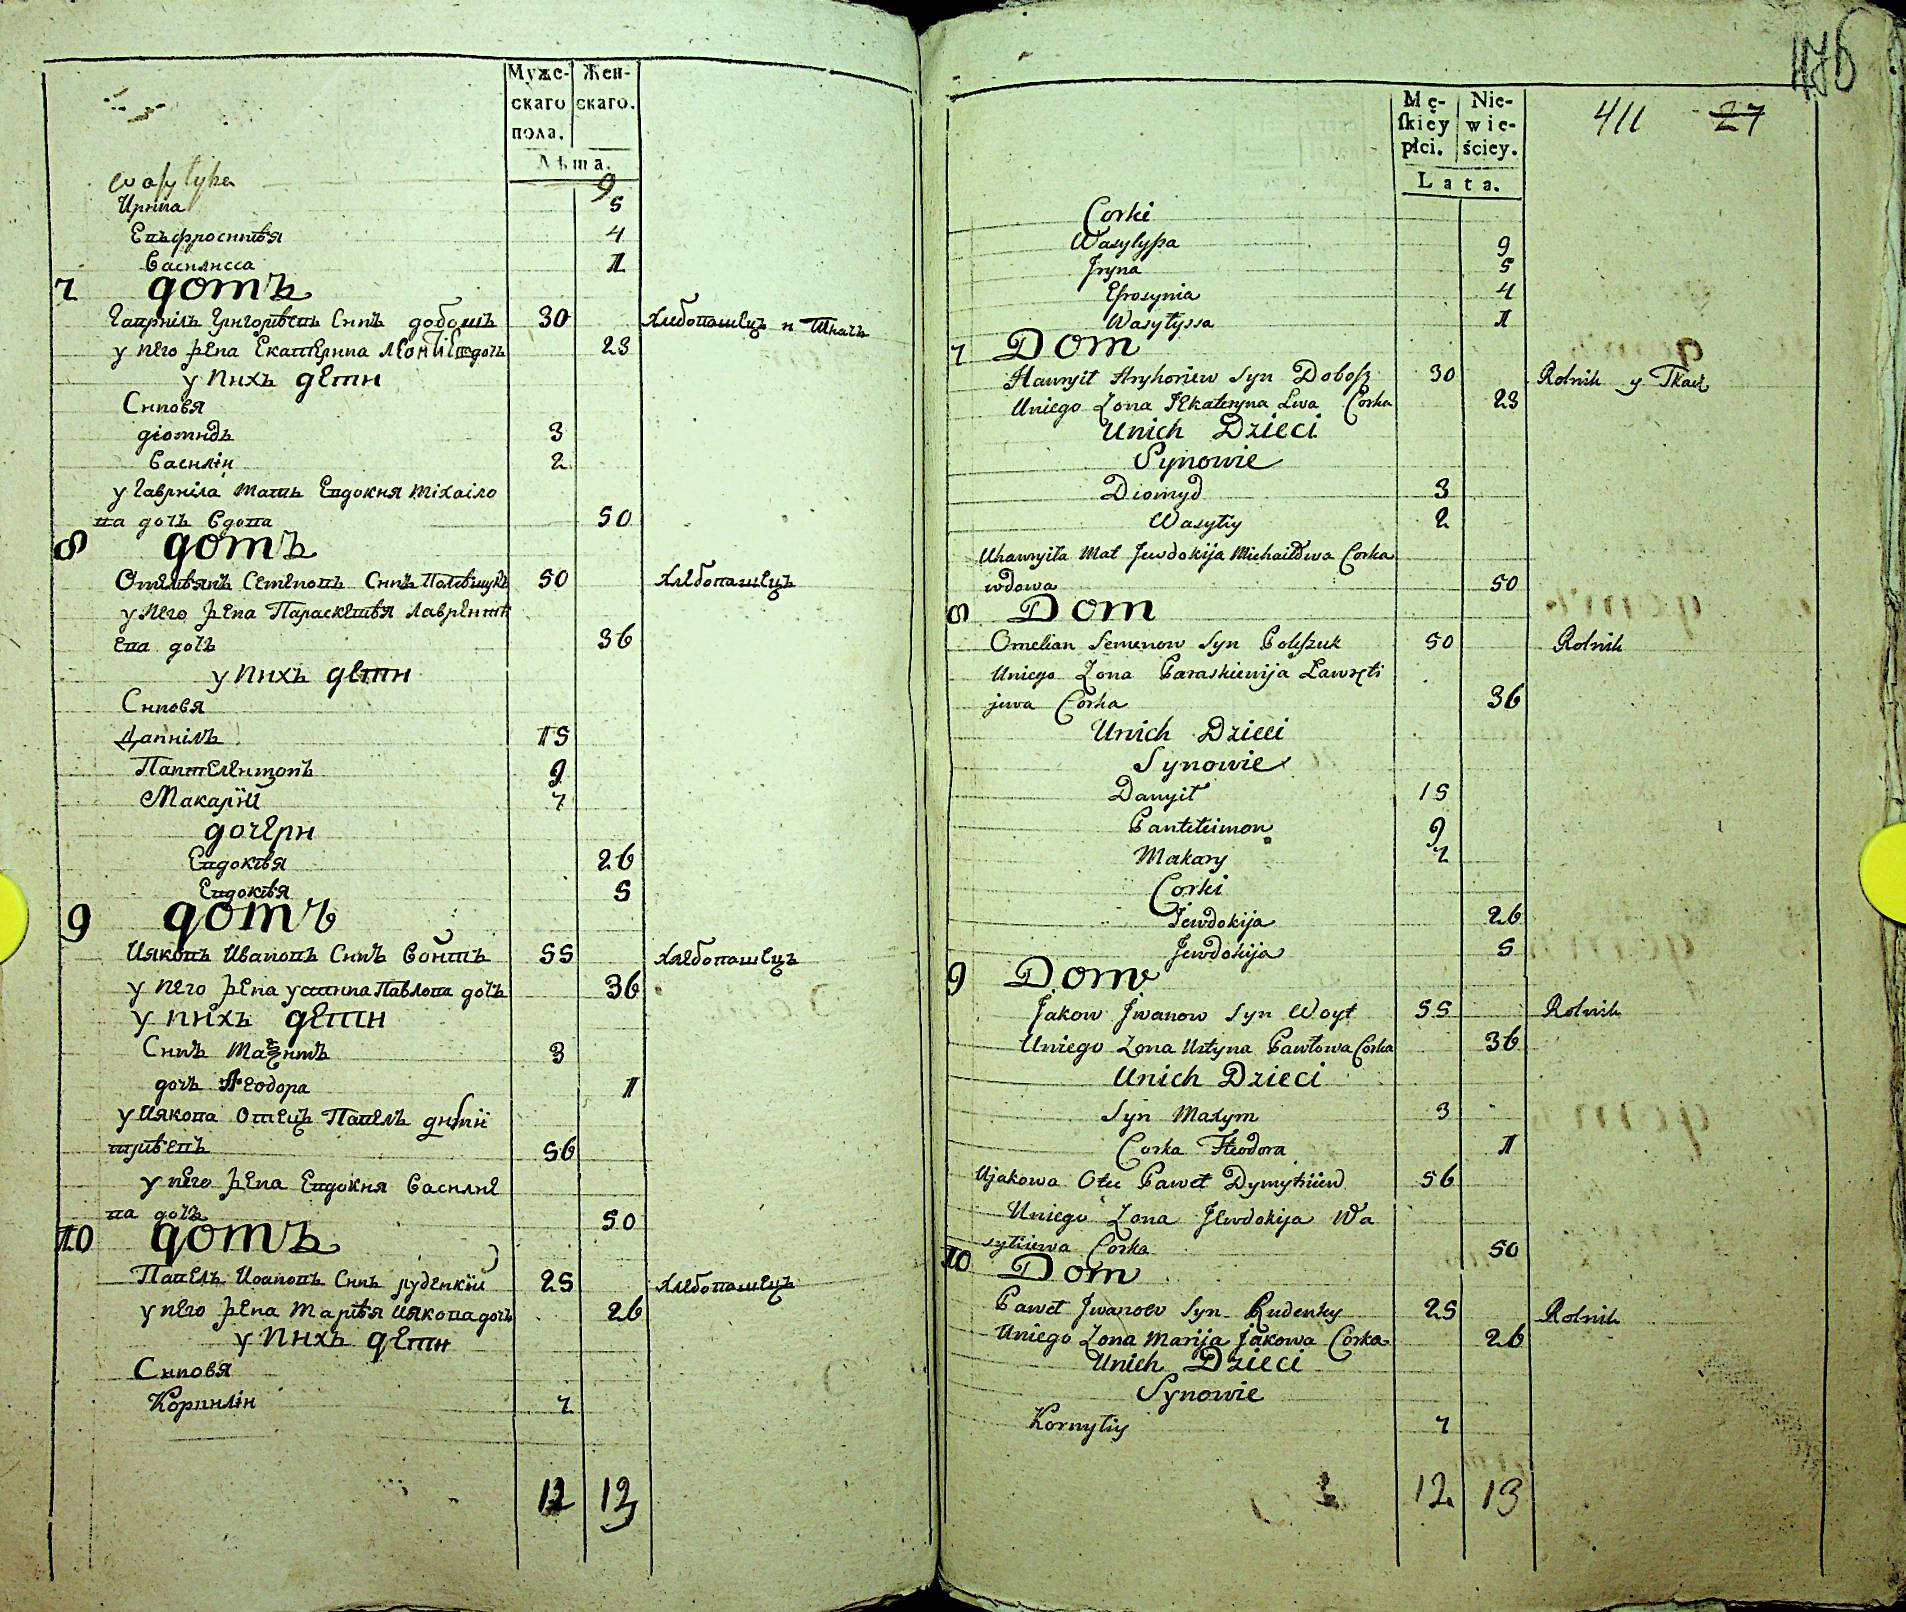 Муже- Жен-
скаго скаго.
пола.
Лѣта.
Wasylysa 9
Ирина 5
Евъфросинѣя 4
Василисса 1
7 домъ
Гавриіль Григорѣевъ Снъ добошъ 30 хлебопашецъ и Ткачъ
у него жена Екатерина Леонтіева дочъ 23
у нихъ дети
Сиповя
діомидъ 3
Василій 2
у Гавриіла Мать Евдокия Міхаіло
ва дочъ вдова 50
8 домъ
Омелѣянъ Семеновъ Снъ Полѣщукъ 50 хлебопашецъ
у него жена Параскевѣя Лаврентѣ
ева дочъ 36
у нихъ дети
Сиповя
Даниілъ 15
Пантелеимонъ 9
Макарій 7
дочери
Евдокѣя 26
Евдокѣя 5
9 домъ
Ияковъ Ивановъ Снъ Войтъ 55 хлебопашецъ
у него жена устина Павлова дочъ 36
у нихъ дети
Снъ Маѯимъ 3
дочъ Феодора 1
у Иякова Отецъ Павелъ дими
трѣевъ 56
у него жена Евдокия Василие
ва дочъ 50
10 домъ
Павелъ Ивановъ Снъ руденкій 25 хлебопашецъ
у него жена Марѣя Иякова дочъ 26
у нихъ дети
Сиповя
Корнилій 7
12 13
476
Mę- Nie-
skiey wie-
płci. ściey.
Lata.
411 27
Corki
Wasylysa 9
Jryna 5
Efrosynia 4
Wasylyssa 1
7 Dom
Hawryił Hryhoriew Syn Dobosz 30 Rolnik y Tkacz
Uniego Zona Jekateryna Lwa Corka 23
Unich Dzieci
Synowie
Diomyd 3
Wasyliy 2
Uhawryiła Mat Jewdokija Michaiłowa Corka
wdowa 50
8 Dom
Omelian Semenow Syn Poleszuk 50 Rolnik
Uniego Zona Paraskiewija Ławręti
jewa Corka 36
Unich Dzieci
Synowie
Danyił 15
Panteleimon 9
Makary 7
Corki
Jewdokija 26
Jewdokija 5
9 Dom
Jakow Jwanow Syn Woyt 55 Rolnik
Uniego Zona Ustyna Pawłowa Corka 36
Unich Dzieci
Syn Maxym 3
Corka Fteodora 1
Ujakowa Otec Paweł Dymytriiew 56
Uniego Zona Jewdokija Wa
syliewa Corka 50
10 Dom
Paweł Jwanow Syn Rudenky 25 Rolnik
Uniego Zona Marija Jakowa Corka 26
Unich Dzieci
Synowie
Kornyliy 7
12 13